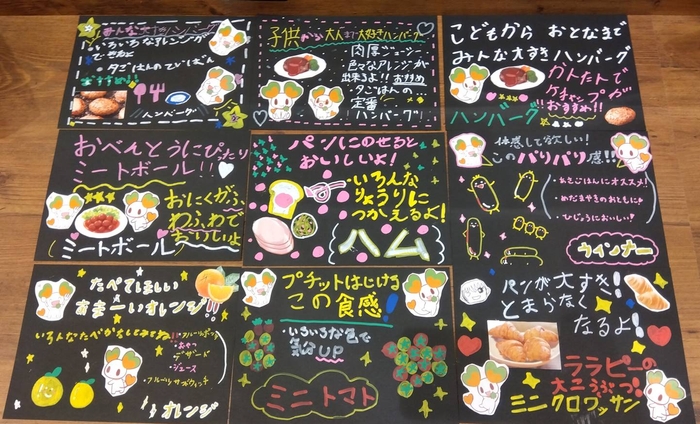 みんな大好きハンバーグ
いろいろなアレンジが
できるよ
夕ごはんの
おすすめ!!
ハンバーグ
子供から大人まで大好きハンバーグ
肉厚ジューシー
色々なアレンジが
出来るよ!!おすすめ
夕ごはんの
定番
ハンバーグ
こどもから おとなまで
みんな大すきハンバーグ
かんたんで
ケチャップが
おすすめ!!
ハンバーグ
おべんとうにぴったり
ミートボール!!
おにくがふ
わふわで
おいしいよ
ミートボール
パンにのせると
おいしいよ!
・いろんな
りょうりに
つかえるよ!
ハム
体感して欲しい!
このパリパリ感!!
・あさごはんにオススメ!
・めだまやきのおともに
・ひじょうにおいしい!
ウインナー
たべてほしい
あまーいオレンジ!!
いろんなたべかたをしてみてね
・おやつ
・デザート
・ジュース
・フルーツサンドウィッチ
オレンジ
プチッとはじける
この食感!
・いろいろな色で
気分UP
ミニトマト
パンが大すき!
とまらなく
なるよ!
ララピーの
大こうぶつ!
ミニクロワッサン